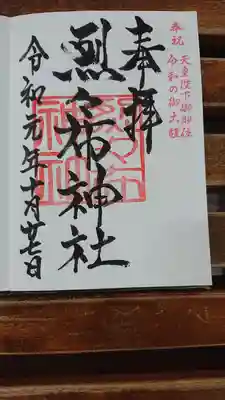 奉祝 天皇陛下御即位
令和の御大禮
奉拝
烈々布神社
令和元年十月廿七日